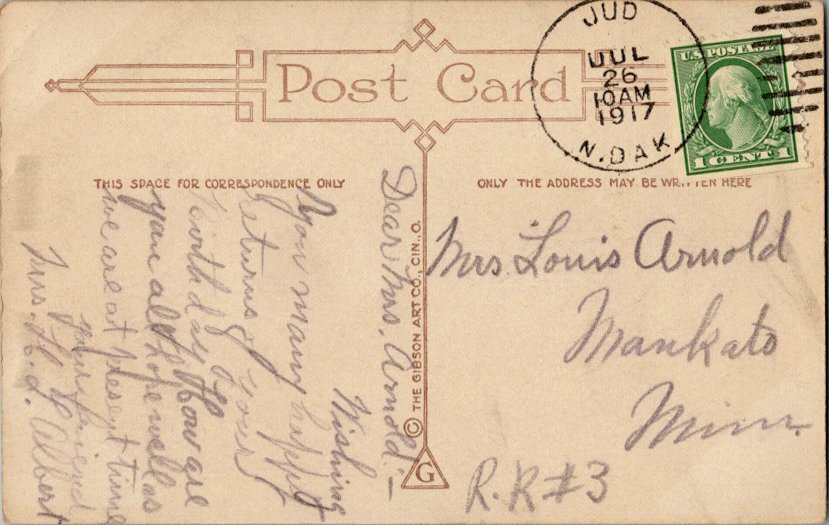 Post Card
JUD
JUL
26
10AM
1917
N.DAK
U.S. POSTAGE
1 CENT 1
THIS SPACE FOR CORRESPONDENCE ONLY
ONLY THE ADDRESS MAY BE WRITTEN HERE
Dear Mrs. Arnold:-
Wishing
you many happy
returns of your
birthday. How are
you all hope well as
we are at present time
your friend
Mrs. H. L. Albert
© THE GIBSON ART CO., CIN., O.
G
Mrs Louis Arnold
Mankato
Minn.
R.R #3